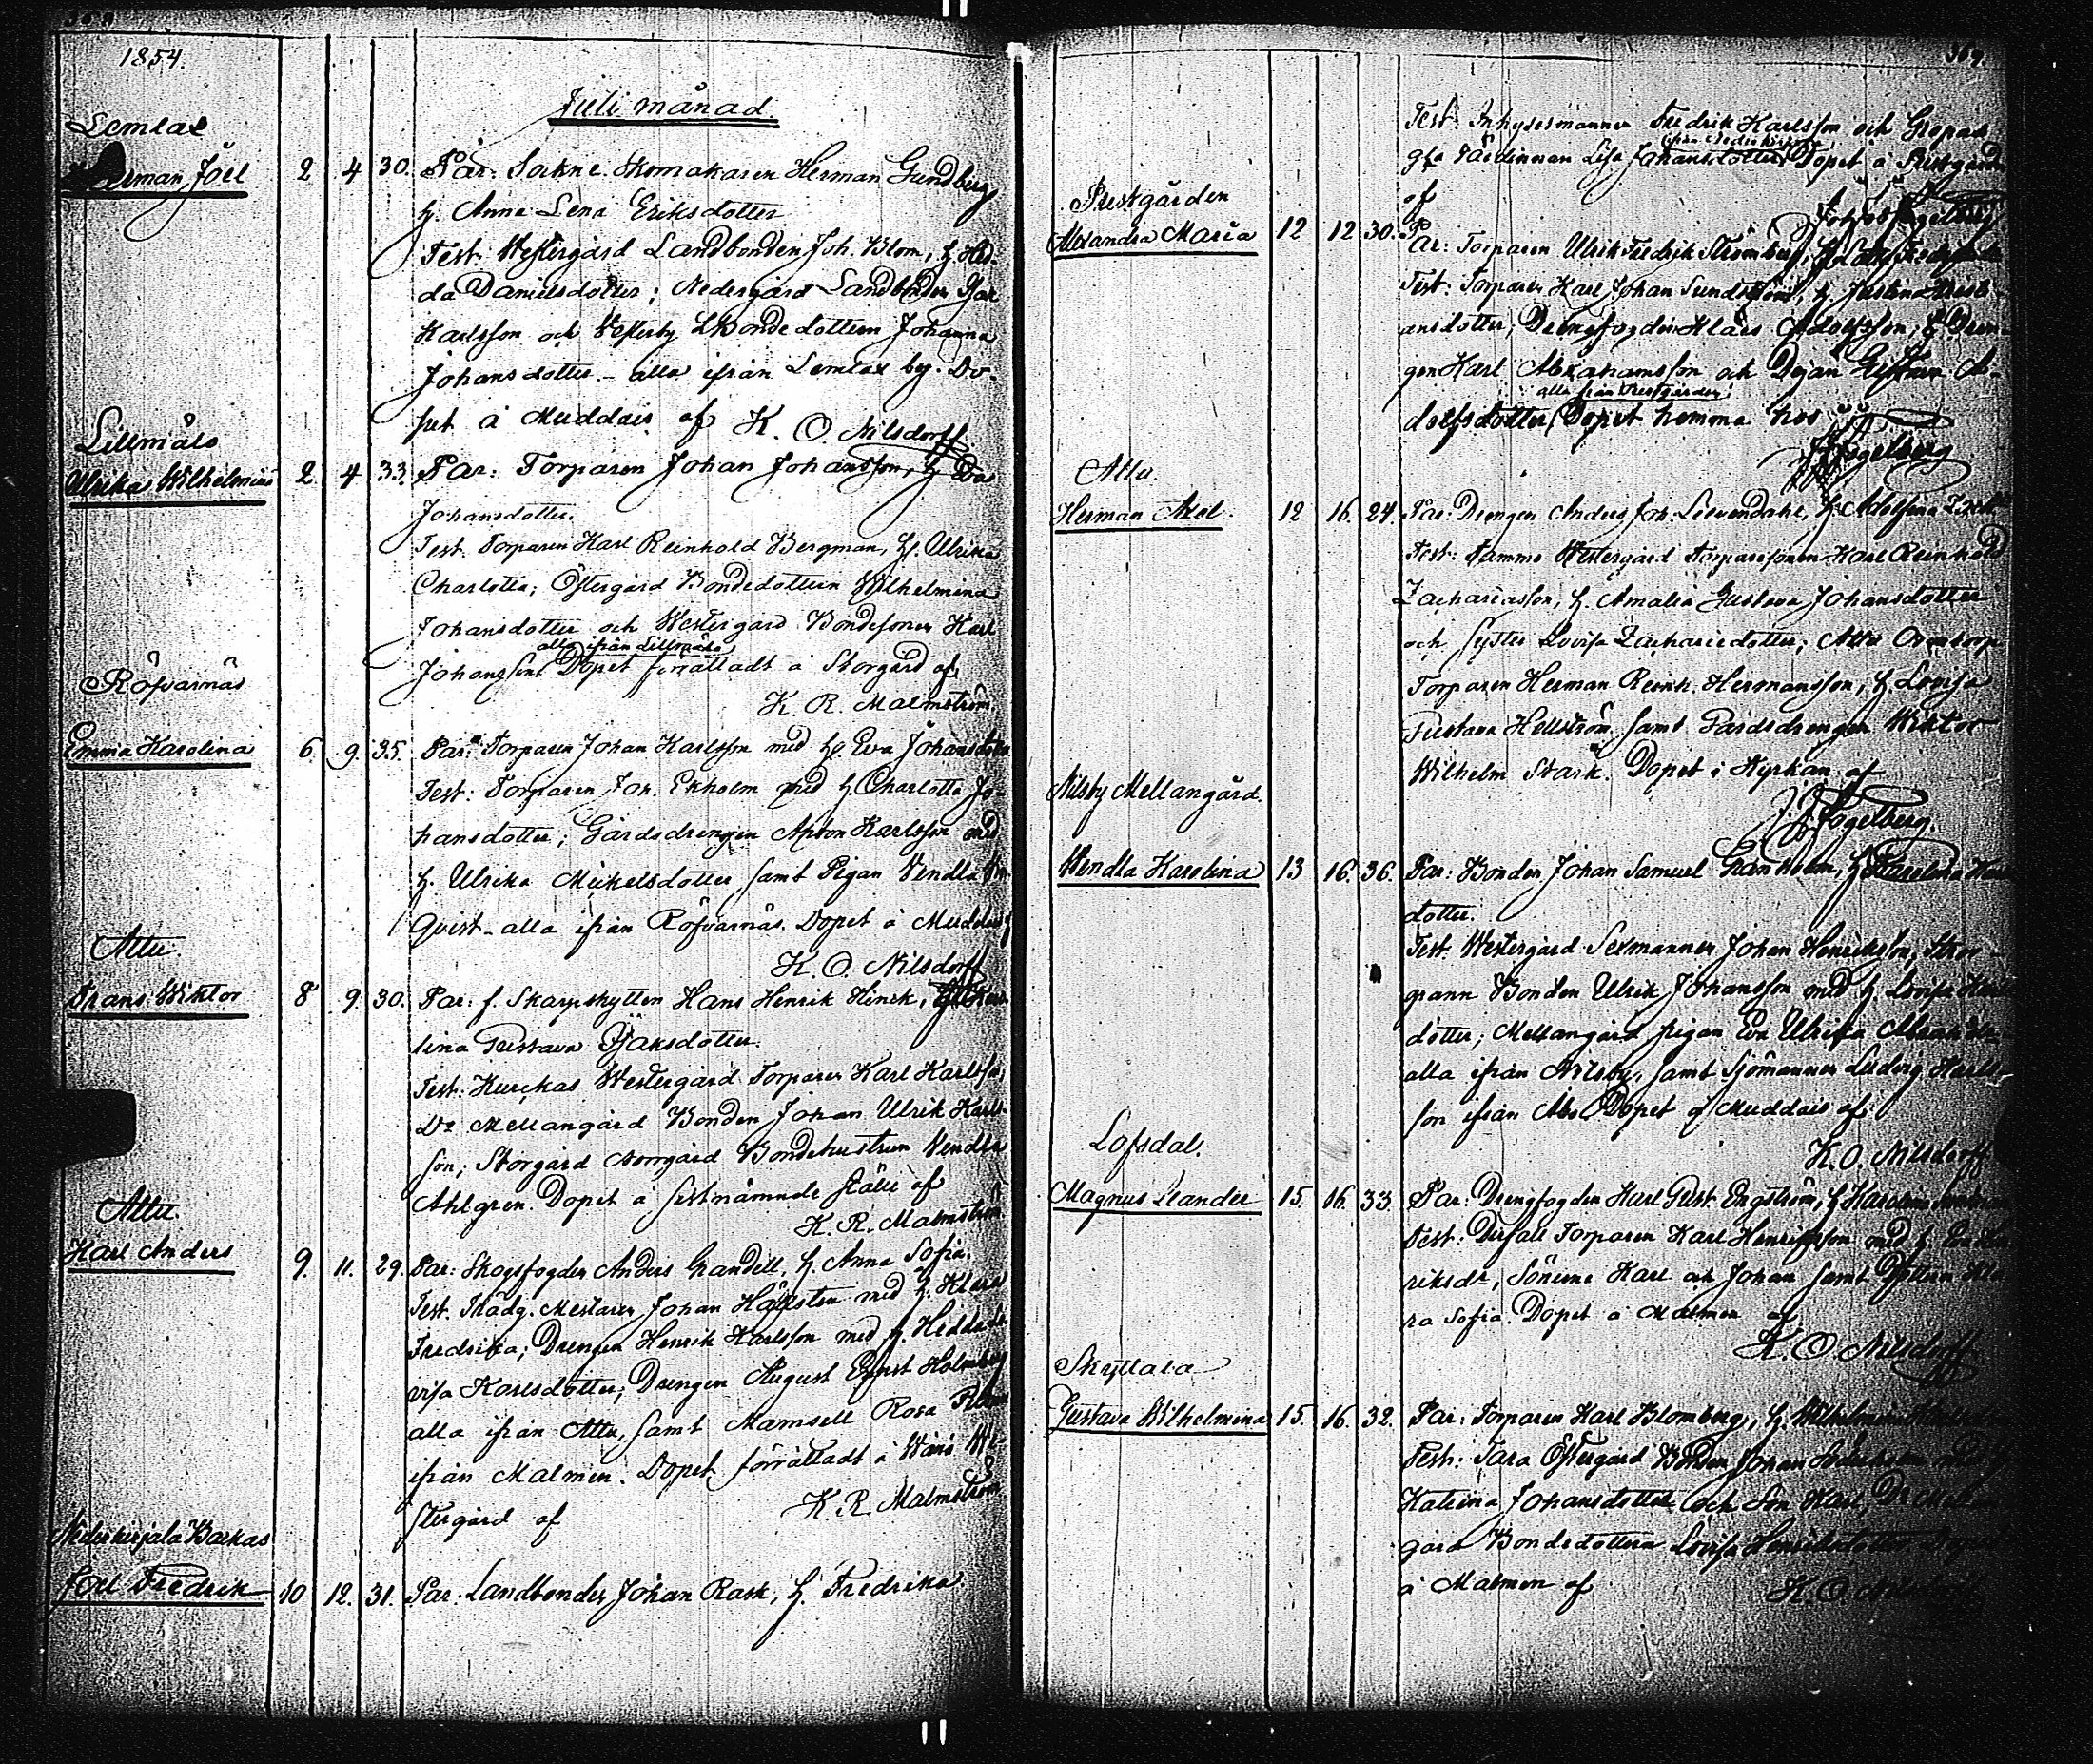 1854.
Juli månad.
Lemlax
Herman Joel 2 4 30. Par: Sockne Skomakaren Herman Gundberg,
h. Anna Lena Eriksdotter
Test. Westergård Landbonden Joh. Blom, h. Hed-
da Danielsdotter; Nedergård Landbonden Isak
Karlsson och Westerby Lbondedottern Johanna
Johansdotter – alla ifrån Lemlax by. Dö-
pet å Muddais af K. O. Nilsdorff
Lillmälö
Ulrika Wilhelmina 2 4 33. Par: Torparen Johan Johansson, h. Eva
Johansdotter.
Test. Torparen Karl Reinhold Bergman, h. Ulrika
Charlotta; Östergård Bondedottern Wilhelmina
Johansdotter och Westergård Bondesonen Karl
alla ifrån Lillmälö
Johansson. Dopet förrättadt å Storgård af
K. R. Malmström.
Röfvarnäs
Emma Karolina 6. 9. 35. Par: Torparen Johan Karlsson med h. Eva Johansdotter
Test: Torparen Joh. Ekholm med h. Charlotta Jo-
hansdotter; Gårdsdrengen Anton Karlsson med
h. Ulrika Mickelsdotter samt Pigan Vendla
Qvist – alla ifrån Röfvarnäs. Dopet å Muddais af
K. O. Nilsdorff
Attu.
Frans Wiktor 8 9. 30. Par: f. Skarpskytten Hans Henrik Hinek, h. Karo-
lina Gustava Isaksdotter.
Test: Kurckas Westergård Torparen Karl Karlsson,
Do Mellangård Bonden Johan Ulrik Karls-
son; Storgård Norrgård Bondehustrun Vendla
Ahlgren. Dopet å sistnämnde ställe af
K. R. Malmström
Attu.
Karl Anders 9. 11. 29. Par: Skogsfogden Anders Grandell, h. Anna Sofia.
Test. Trädg. Mestaren Johan Hällsten med h. Klara
Fredrika; Drengen Henrik Karlsson med h. Hedda Lo-
visa Karlsdotter; Drengen August Ernst Holmberg
alla ifrån Attu, samt Mamsell Rosa
ifrån Malmen. Dopet förrättadt å Wånå We-
stergård af K. R. Malmström
Nederkirjala Backas
Joel Fredrik 10 12. 31. Par: Landbonden Johan Rask, h. Fredrika
369.
Test: Inhysesmannen Fredrik Karlsson och
Värdinnan Lisa Johansdotter Dopet å Prestgården
af
Prestgården
Alexandra Maria 12 12 30. Par: Torparen Ulrik Fredrik Strömberg,
Test: Torparen Karl Johan Sundström, h. Justina
ansdotter, Drengfogden Klaes Adolfsson, Dren-
gen Karl Abrahamsson och Dejan Gustava A-
alla från Prestgården
dolfsdotter, Dopet hemma hos
Fogelberg
Attu.
Herman Axel. 12 16. 24. Par: Drengen Anders Joh. Lievendahl, h. Adolfina
Test: Pammo Westergård Torparesonen Karl Reinhold
Zachariasson, h. Amalia Gustava Johansdotter
och Syster Lovisa Zachariedotter; Attu
Torparen Herman Reinh. Hermansson, h. Lovisa
Gustava Hellström samt Gårdsdrengen Wiktor
Wilhelm Stark. Dopet i Kyrkan af
Fogelberg.
Nilsby Mellangård.
Wendla Karolina 13 16. 36. Par: Bonden Johan Samuel Granholm, h. Karolina
dotter.
Test. Westergård Sexmannen Johan Henriksson, Stor-
grann Bonden Ulrik Johansson med h. Lovisa
dotter; Mellangård pigan Eva Ulrika
alla ifrån Nilsby, samt Sjömannen Ludvig Karls-
son ifrån Åbo. Dopet å Muddais af
K. O. Nilsdorff
Lofsdal.
Magnus Leander 15. 16. 33. Par: Drengfogden Karl Gust. Engström, h. Karolina
Test: Torparen Karl Henriksson med h.
riksdr, Sönerne Karl och Johan samt Dottern Kla-
ra Sofia. Dopet å Malmen af
K. O. Nilsdorff
Skyttala
Gustava Wilhelmina 15. 16. 32. Par: Torparen Karl Blomberg, h. Wilhelmina
Test: Tara Östergård Bonden Johan
Katrina Johansdotter och Son Karl, Do
gård Bondedottern Lovisa Henriksdotter
å Malmen af K. O.